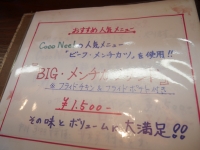 おすすめ人気メニュー
Coco Neel の人気メニュー
"ビーフ・メンチカツ"を使用!!
"BIG・メンチカツ
※フライドチキン&フライドポテト付き
¥1,500-
その味とボリュームに大満足!!